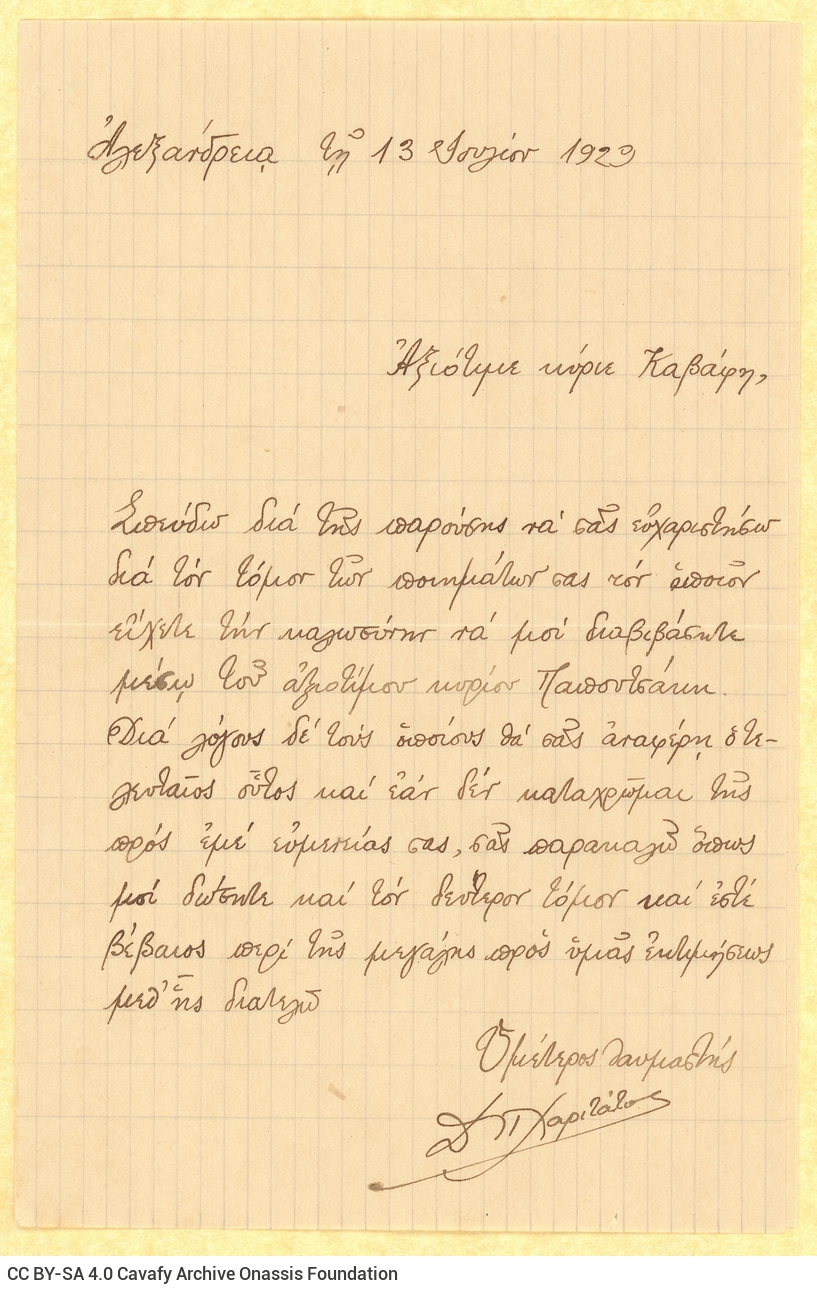 Ἀλεξανδρείᾳ τῇ 13 Ἰουλίου 1923
Ἀξιότιμε κύριε Καβάφη,
Σπεύδω διά τῆς παρούσης νά σᾶς εὐχαριστήσω
διά τόν τόμον τῶν ποιημάτων σας τόν ὁποῖον
εἴχετε τήν καλωσύνην νά μοί διαβιβάσητε
μέσῳ τοῦ ἀξιοτίμου κυρίου Παπουτσάκη.
Διά λόγους δέ τούς ὁποίους θά σᾶς ἀναφέρῃ ὁ τε-
λευταῖος οὗτος καί ἐάν δέν καταχρῶμαι τῆς
πρός ἐμέ εὐμενείας σας, σᾶς παρακαλῶ ὅπως
μοί δώσητε καί τόν δεύτερον τόμον καί ἐστέ
βέβαιος περί τῆς μεγάλης πρός ὑμᾶς ἐκτιμήσεως
μεθ' ἧς διατελῶ
Ὑμέτερος θαυμαστής
Δ Π Χαριτάτος
CC BY-SA 4.0 Cavafy Archive Onassis Foundation